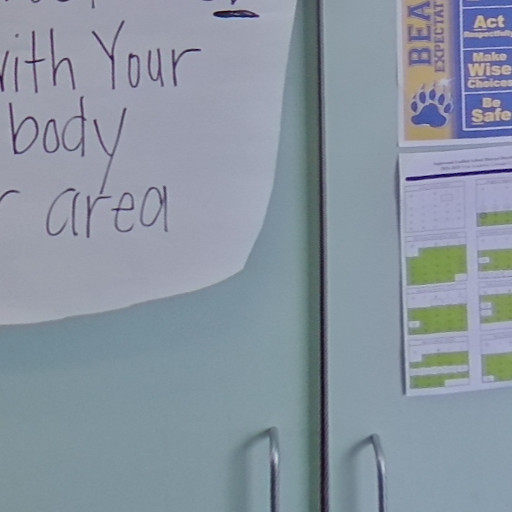 with Your
body
r area
BEA
EXPECTAT
Act
Respectfully
Make
Wise
Choices
Be
Safe